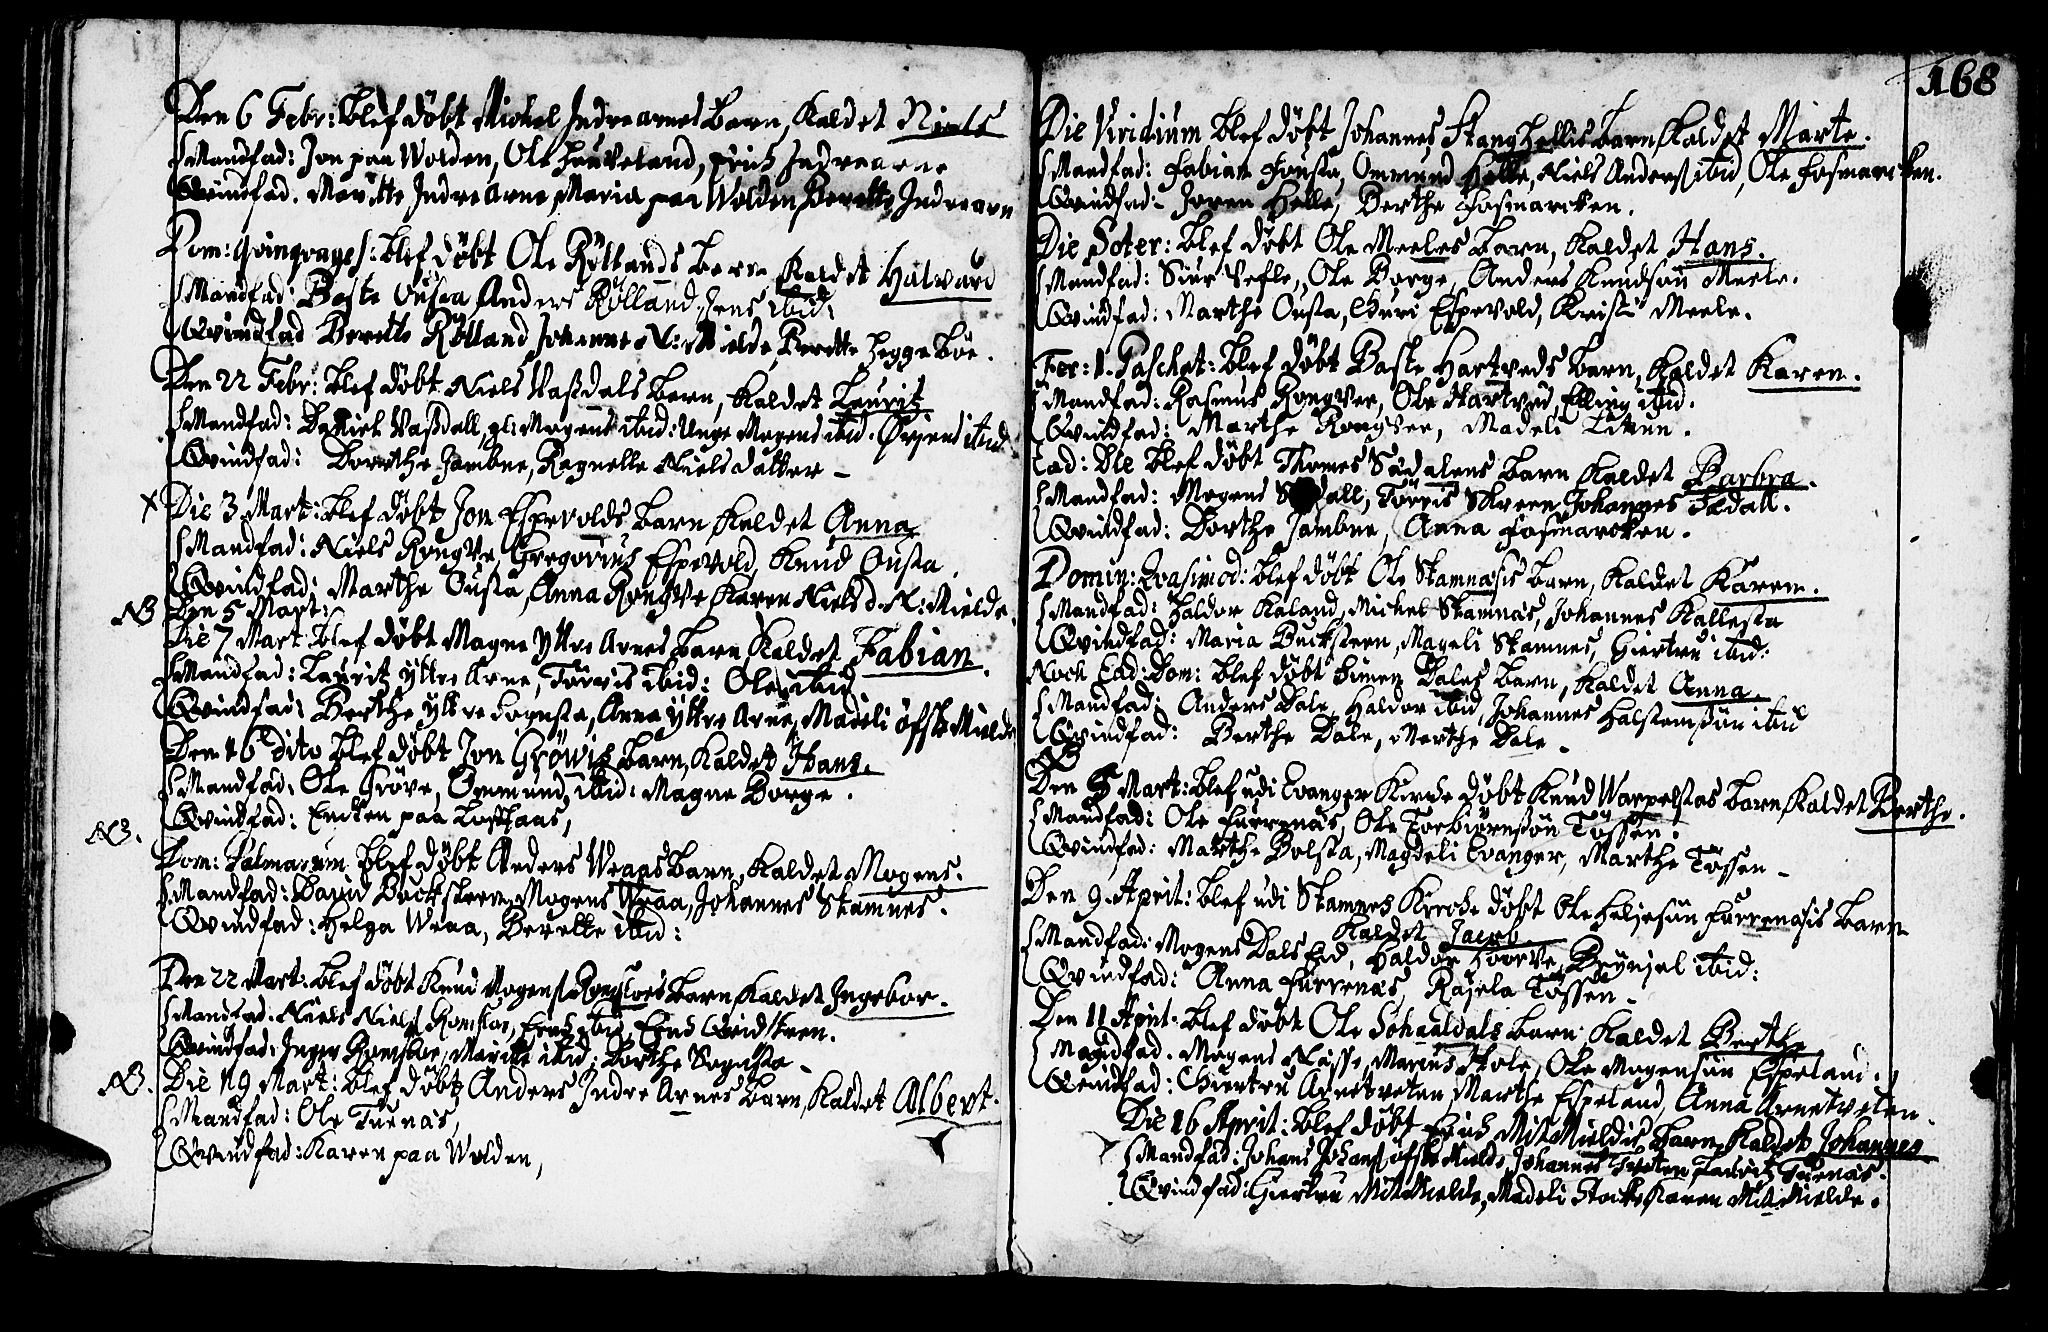 Den 6 Febr: blef döbt Michel Indrearnes Barn, kaldet Niels
Mandfad: Jon paa Wolden, Ole Houveland, Erich Indrearne
Qvindfad. Maritte Indre Arne, Maria paa Wolden, Berette Indrearn
Dom: Qvinqvages: blef döbt Ole Röllands Barn, kaldet Halvard
Mandfad: Baste Ousta, Anders Rölland, Jens ibid:
Qvindfad Berette Rölland, Johannes N: Mielde, Berette Heggeböe.
Den 22 Febr: blef döbt Niels Vaßdals Barn, kaldet Laurit
Mandfad: Daniel Vaßdall, gl: Mogens ibid: Unge Mogens ibid. Örjens ibid
Qvindfad: Dorethe Jambne, Ragnelle Nielsdatter -
x Die 3 Mart: blef döbt Jon Espevolds Barn kaldet Anna
Mandfad: Niels Rongve, Gregorius Espevold, Knud Ousta.
Qvindfad: Marthe Ousta, Anna Rongve, Karen Nielsd. N: Mielde.
NB Den 5 Mart:
Die 7 Mart blef döbt Magne Yttre Arnes Barn, kaldet Fabian.
Mandfad: Laurit Yttre Arne, Torris ibid: Ole ibid
Qvindfad: Berthe Yttre Sognsta, Anna Yttre Arne, Madeli Öfste Mielde
Den 16 dito blef döbt Jon Gröwis Barn, kaldet Hans.
Mandfad: Ole Gröve, Ommund ibid: Magne Borge.
Qvindfad: Encken paa Loftaas,
NB. Dom: Palmarum blef döbt Anders Wraas Barn, kaldet Mogens.
Mandfad: David Bucksteen, Mogens Wraa, Johannes Stamnes.
Qvindfad: Helga Wraa, Berette ibid:
Den 22 Mart: blef döbt Knud Mogens: Romsloes Barn, kaldet Ingebor.
Mandfad: Niels Niels: Romsloe, Erich ibid, Erich Qvidsteen.
Qvindfad: Inger Romsloe, Maritte ibid: Berthe Sognsta -
NB. Die 19 Mart: blef döbt Anders Indre Arnes Barn, kaldet Albert.
Mandfad: Ole Tuenäs,
Qvindfad: Karen paa Wolden,
168
Die Viridium blef döbt Johannes Stanghellis Barn, kaldet Marte.
Mandfad: Fabian Fousta, Ommund Helle, Niels Anders: ibid, Ole Fosmarcken.
Qvindfad: Joren Helle, Berthe Fosmarcken.
Die Soter: blef döbt Ole Meeles Barn, kaldet Hans.
Mandfad: Siur Vefle, Ole Borge, Anders Knudsön Meele.
Qvindfad: Marthe Ousta, Guri Espevold, Kristi Meele.
Fer: 1. Paschat: blef döbt Baste Hartveds Barn, kaldet Karen.
Mandfad: Rasmus Rongvee, Ole Hartvid, Elling ibid.
Qvindfad: Marthe Rongvee, Madeli Liknen.
Ead: Die blef döbt Thomes Sædalens Barn kaldet Barbra.
Mandfad: Mogens Sædall, Torris Skreen, Johannes Sædall.
Qvindfad: Dorthe Jambne, Anna Fosmarcken.
Domin: Qvasimod: blef döbt Ole Stamnæsis Barn, kaldet Karen.
Mandfad: Haldor Kaland, Mickel Stamnäs, Johannes Kallesta
Qvindfad: Maria Bucksteen, Mageli Stamnes, Giertru ibid:
Noch Ead: Dom: blef döbt Simen Dales Barn, kaldet Anna.
Mandfad: Anders Dale, Haldor ibid, Johannes Halstensön ibid
Qvindfad: Berthe Dale, Marthe Dale -
NB
Den 5 Mart: blef udi Evanger Kirche döbt Knud Warpelstas Barn, kaldet Berthe.
Mandfad: Ole Furrenäs, Ole Torbiörnsön Tössen:
Qvindfad: Marthe Bolsta, Magdeli Evanger, Marthe Tössen -
Den 9. April: blef udi Stamnes Kirche döbt Ole Heljesön Furrenäsis Barn
kaldet Jacob
Mandfad: Mogens Dals Eid, Haldor Hoorve, Brynjel ibid:
Qvindfad: Anna Furrenäs, Rajela Tössen -
Den 11 April: blef döbt Ole Sohaaldals Barn, kaldet Berthe
Mandfad. Mogens Nesse, Marius Hole, Ole Mogensön Espeland.
Qvindfad: Giertru Arnetveten, Marthe Espeland, Anna Arnetveten.
Die 16 April: blef döbt Erich Mit Mieldis Barn, kaldet Johannes
Mandfad: Johans Johans: öfste Mielde, Johannes Tveten, Laurit Tuenäs.
Qvindfad: Giertru Mit Mielde, Madeli Stocke, Karen Mit Mielde.